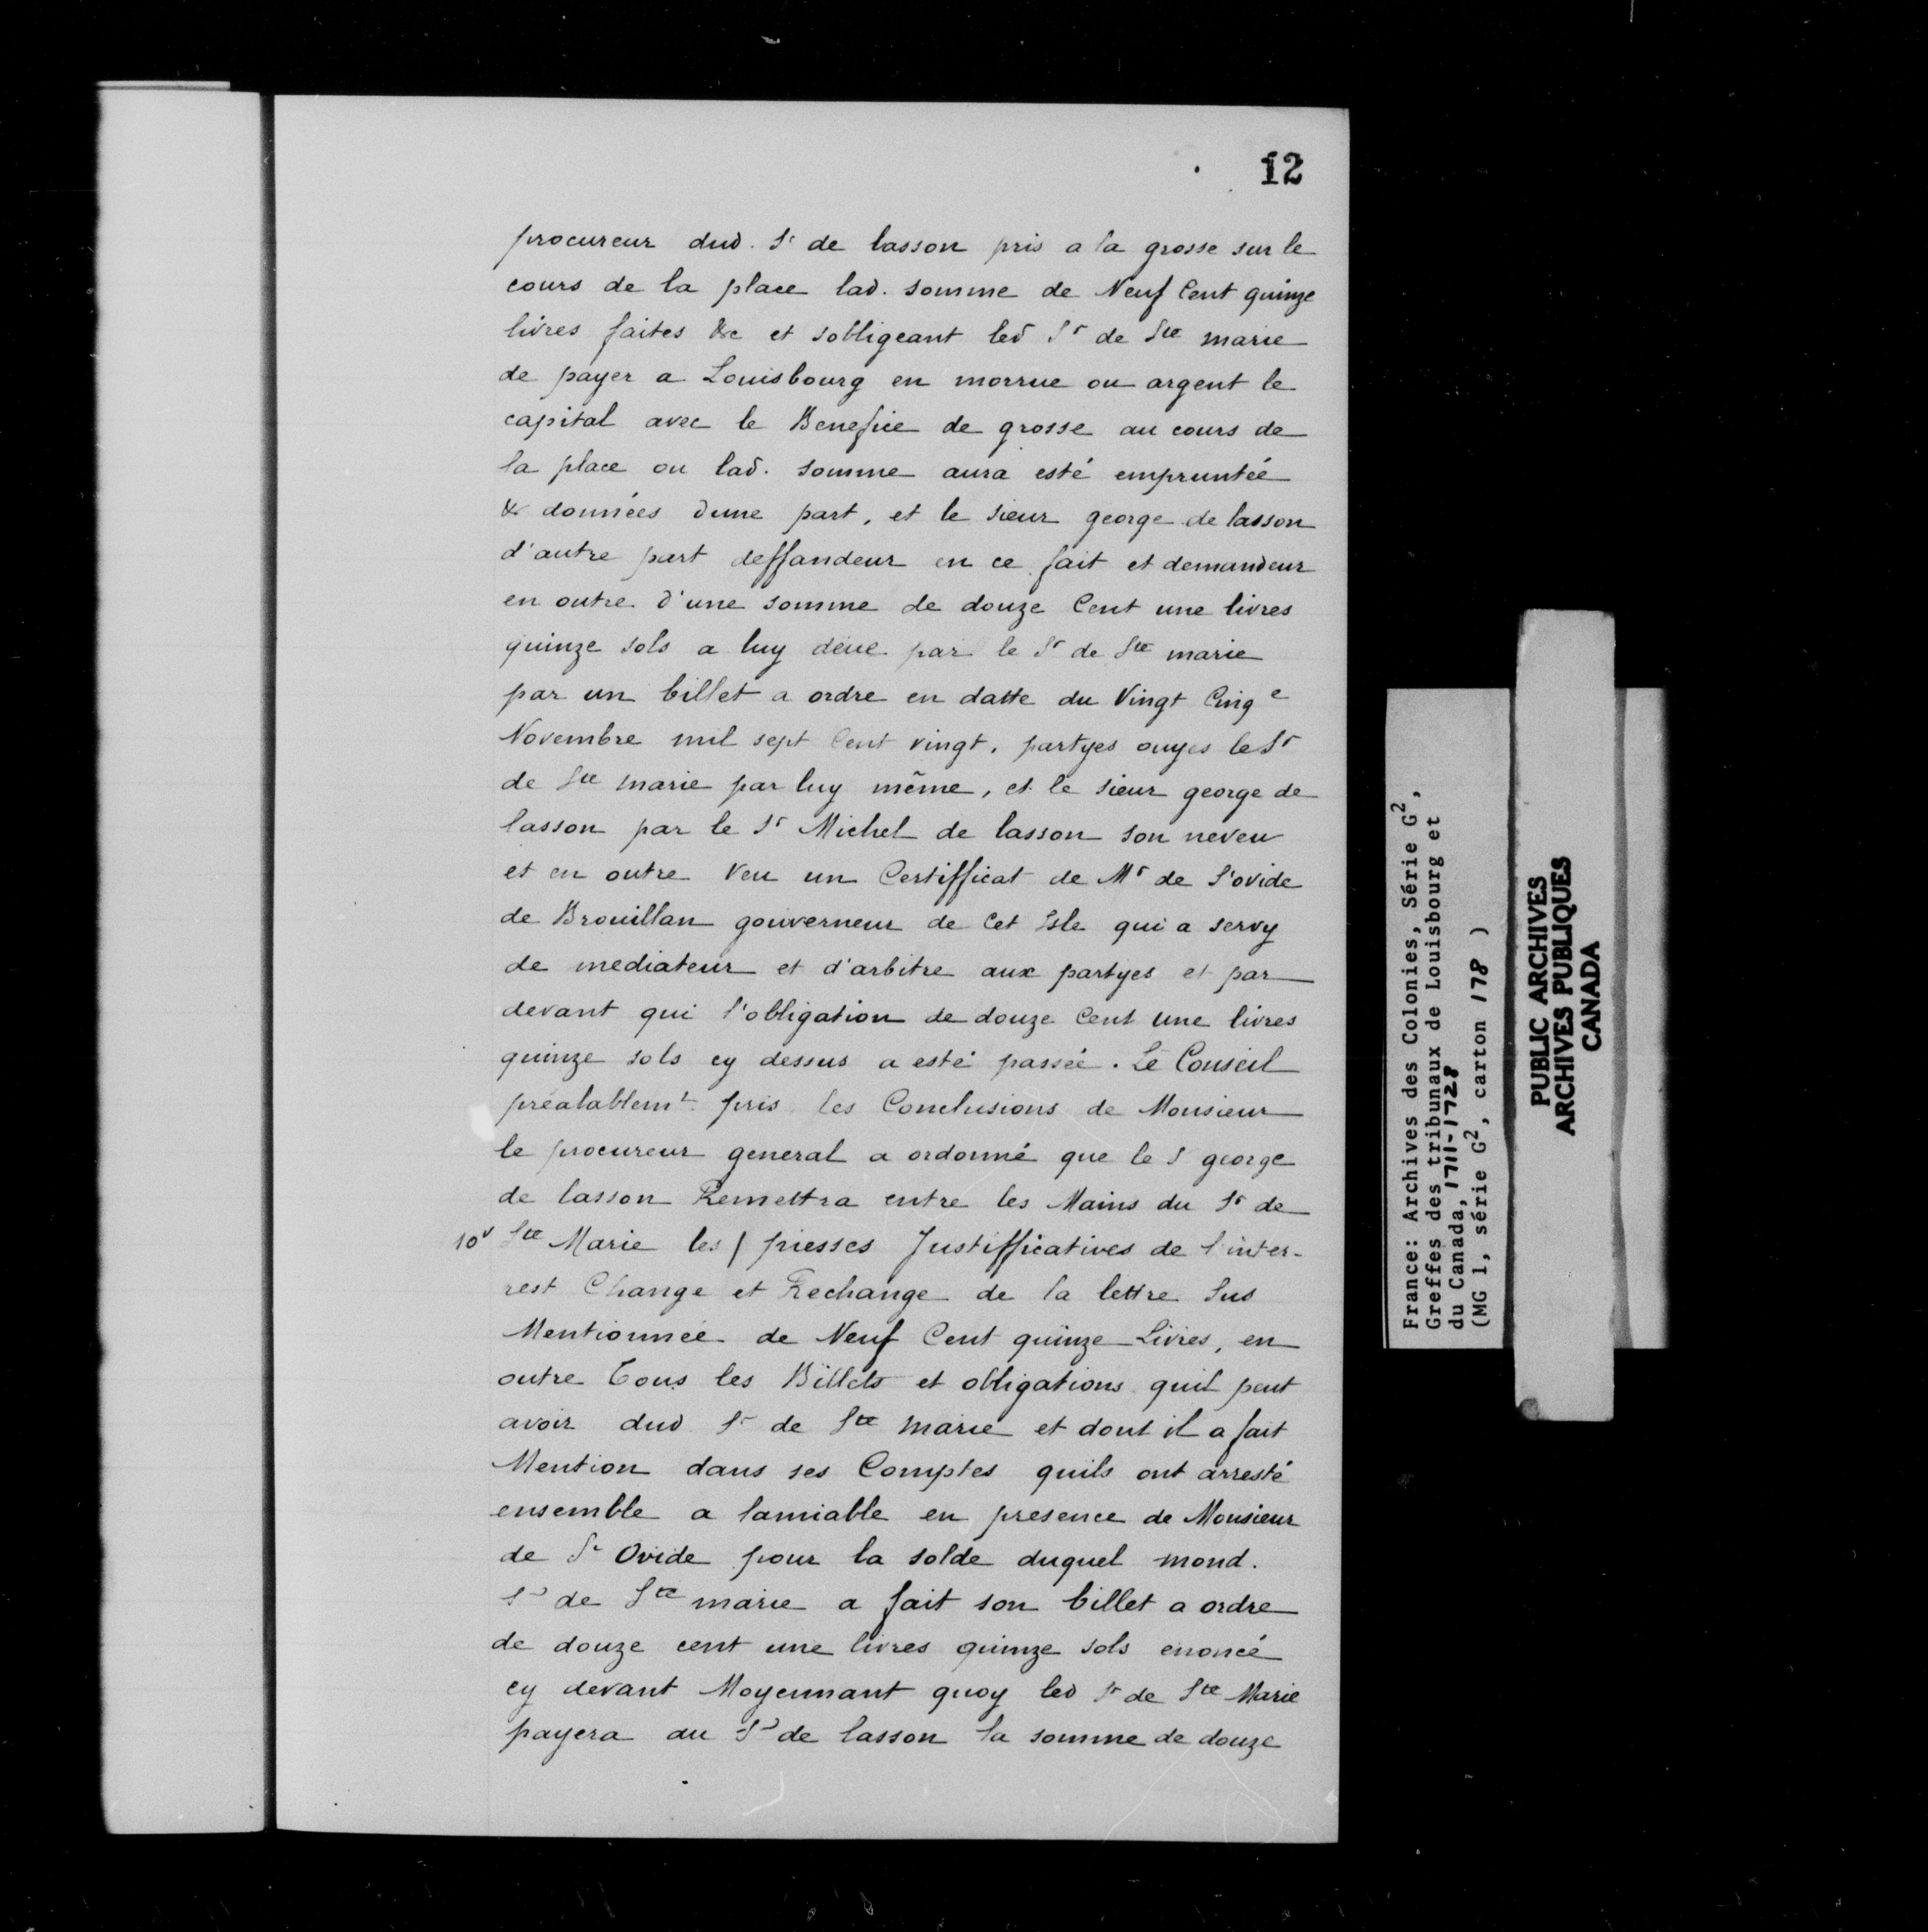 12
procureur dud. Sr de lasson pris a la grosse sur le
cours de la place lad. somme de Neuf Cent quinze
livres faites &c et sobligeant led Sr de Ste marie
de payer a Louisbourg en morrue ou argent le
capital avec le Benefice de grosse au cours de
la place ou lad. somme aura esté empruntée
& données dune part, et le sieur george de lasson
d'autre part deffandeur en ce fait et demandeur
en outre d'une somme de douze Cent une livres
quinze sols a luy deue par le Sr de Ste marie
par un billet a ordre en datte du Vingt Cinq e
Novembre mil sept Cent vingt, partyes ouyes le Sr
de Ste marie par luy même, et le sieur george de
lasson par le Sr Michel de lasson son neveu
et en outre Veu un Certifficat de Mr de S'ovide
de Brouillan gouverneur de Cet Isle qui a servy
de mediateur et d'arbitre aux partyes et par
devant qui l'obligation de douze Cent une livres
quinze sols cy dessus a esté passée. Le Conseil
préalablemt pris les Conclusions de Monsieur
le procureur general a ordonné que le S george
de lasson Remettra entre les Mains du Sr de
10v Ste Marie les / piesses Justifficatives de l'inter-
rest Change et Rechange de la lettre Sus
Mentionnée de Neuf Cent quinze Livres, en
outre Tous les Billets et obligations quil peut
avoir dud Sr de Ste marie et dont il a fait
Mention dans ses Comptes quils ont arresté
ensemble a lamiable en presence de Monsieur
de St Ovide pour la solde duquel mond.
Sr de Ste marie a fait son billet a ordre
de douze cent une livres quinze sols enoncé
cy devant Moyennant quoy led Sr de Ste Marie
payera au Sr de lasson la somme de douze
France: Archives des Colonies, Série G2,
Greffes des tribunaux de Louisbourg et
du Canada, 1711-1728
(MG 1, série G2, carton 178 )
PUBLIC ARCHIVES
ARCHIVES PUBLIQUES
CANADA